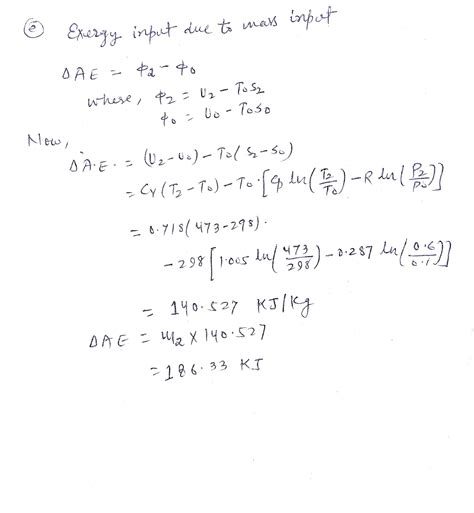 ⓔ Exergy input due to mass input
ΔAE = φ2 - φ0
where, φ2 = U2 - T0S2
φ0 = U0 - T0S0
Now,
ΔA.E. = (U2-U0) - T0(S2-S0)
= Cv(T2-T0) - T0·[Cp ln(T2/T0) - R ln(P2/P0)]
= 0.718(473-298).
-298[1.005 ln(473/298) - 0.287 ln(0.6/0.1)]
= 140.527 KJ/Kg
ΔAE = m2 × 140.527
= 186.33 KJ